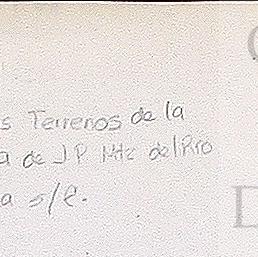 s Terrenos de la
a de J.P. Mtz del Rio
a s/l.